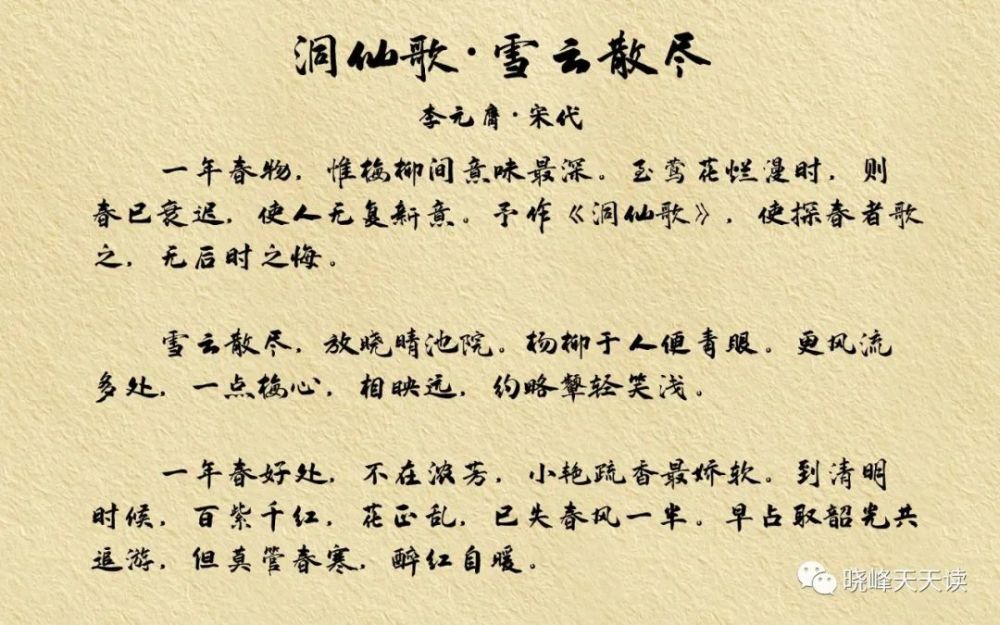 洞仙歌·雪云散尽
李元膺·宋代
一年春物，惟梅柳间意味最深。至莺花烂漫时，则
春已衰迟，使人无复新意。予作《洞仙歌》，使探春者歌
之，无后时之悔。
雪云散尽，放晓晴池院。杨柳于人便青眼。更风流
多处，一点梅心，相映远，约略颦轻笑浅。
一年春好处，不在浓芳，小艳疏香最娇软。到清明
时候，百紫千红，花正乱，已失春风一半。早占取韶光共
追游，但莫管春寒，醉红自暖。
晓峰天天读